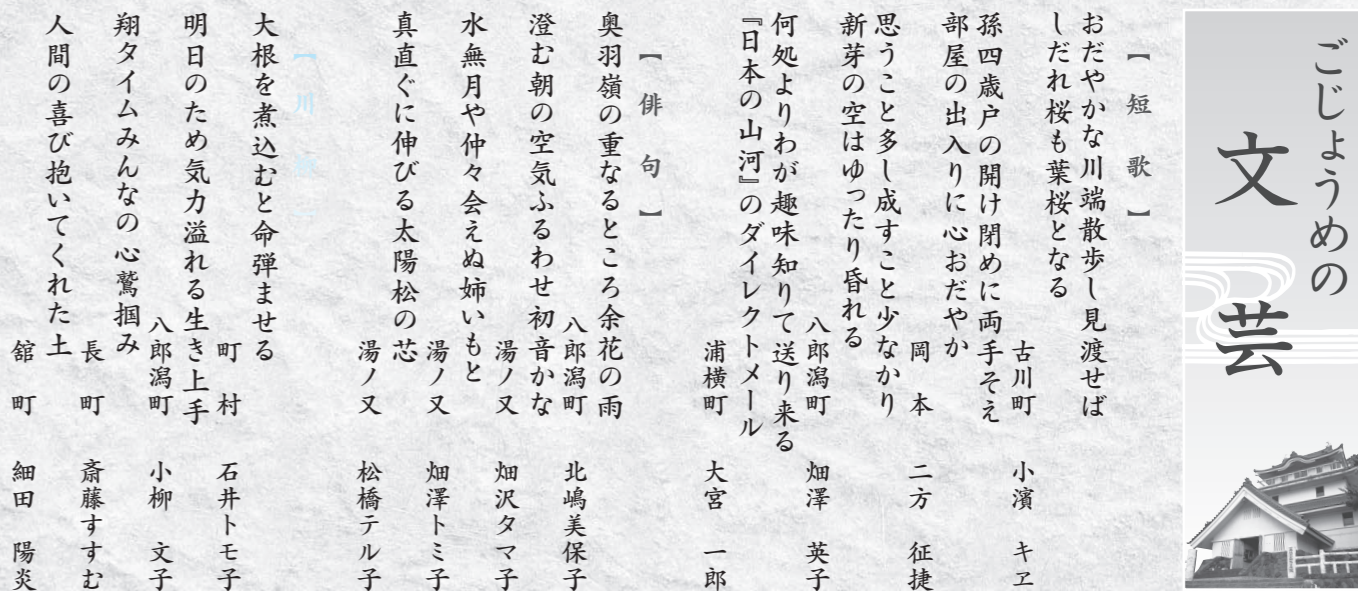 ごじょうめの
文芸
【短歌】
おだやかな川端散歩し見渡せば
しだれ桜も葉桜となる
古川町 小濱 キヱ
孫四歳戸の開け閉めに両手そえ
部屋の出入りに心おだやか
岡本 二方 征捷
思うこと多し成すこと少なかり
新芽の空はゆったり昏れる
八郎潟町 畑澤 英子
何処よりわが趣味知りて送り来る
『日本の山河』のダイレクトメール
浦横町 大宮 一郎
【俳句】
奥羽嶺の重なるところ余花の雨
八郎潟町 北嶋美保子
澄む朝の空気ふるわせ初音かな
湯ノ又 畑沢タマ子
水無月や仲々会えぬ姉いもと
湯ノ又 畑澤トミ子
真直ぐに伸びる太陽松の芯
湯ノ又 松橋テル子
【川柳】
大根を煮込むと命弾ませる
町村 石井トモ子
明日のため気力溢れる生き上手
八郎潟町 小柳 文子
翔タイムみんなの心鷲掴み
長町 斎藤すすむ
人間の喜び抱いてくれた土
舘町 細田 陽炎